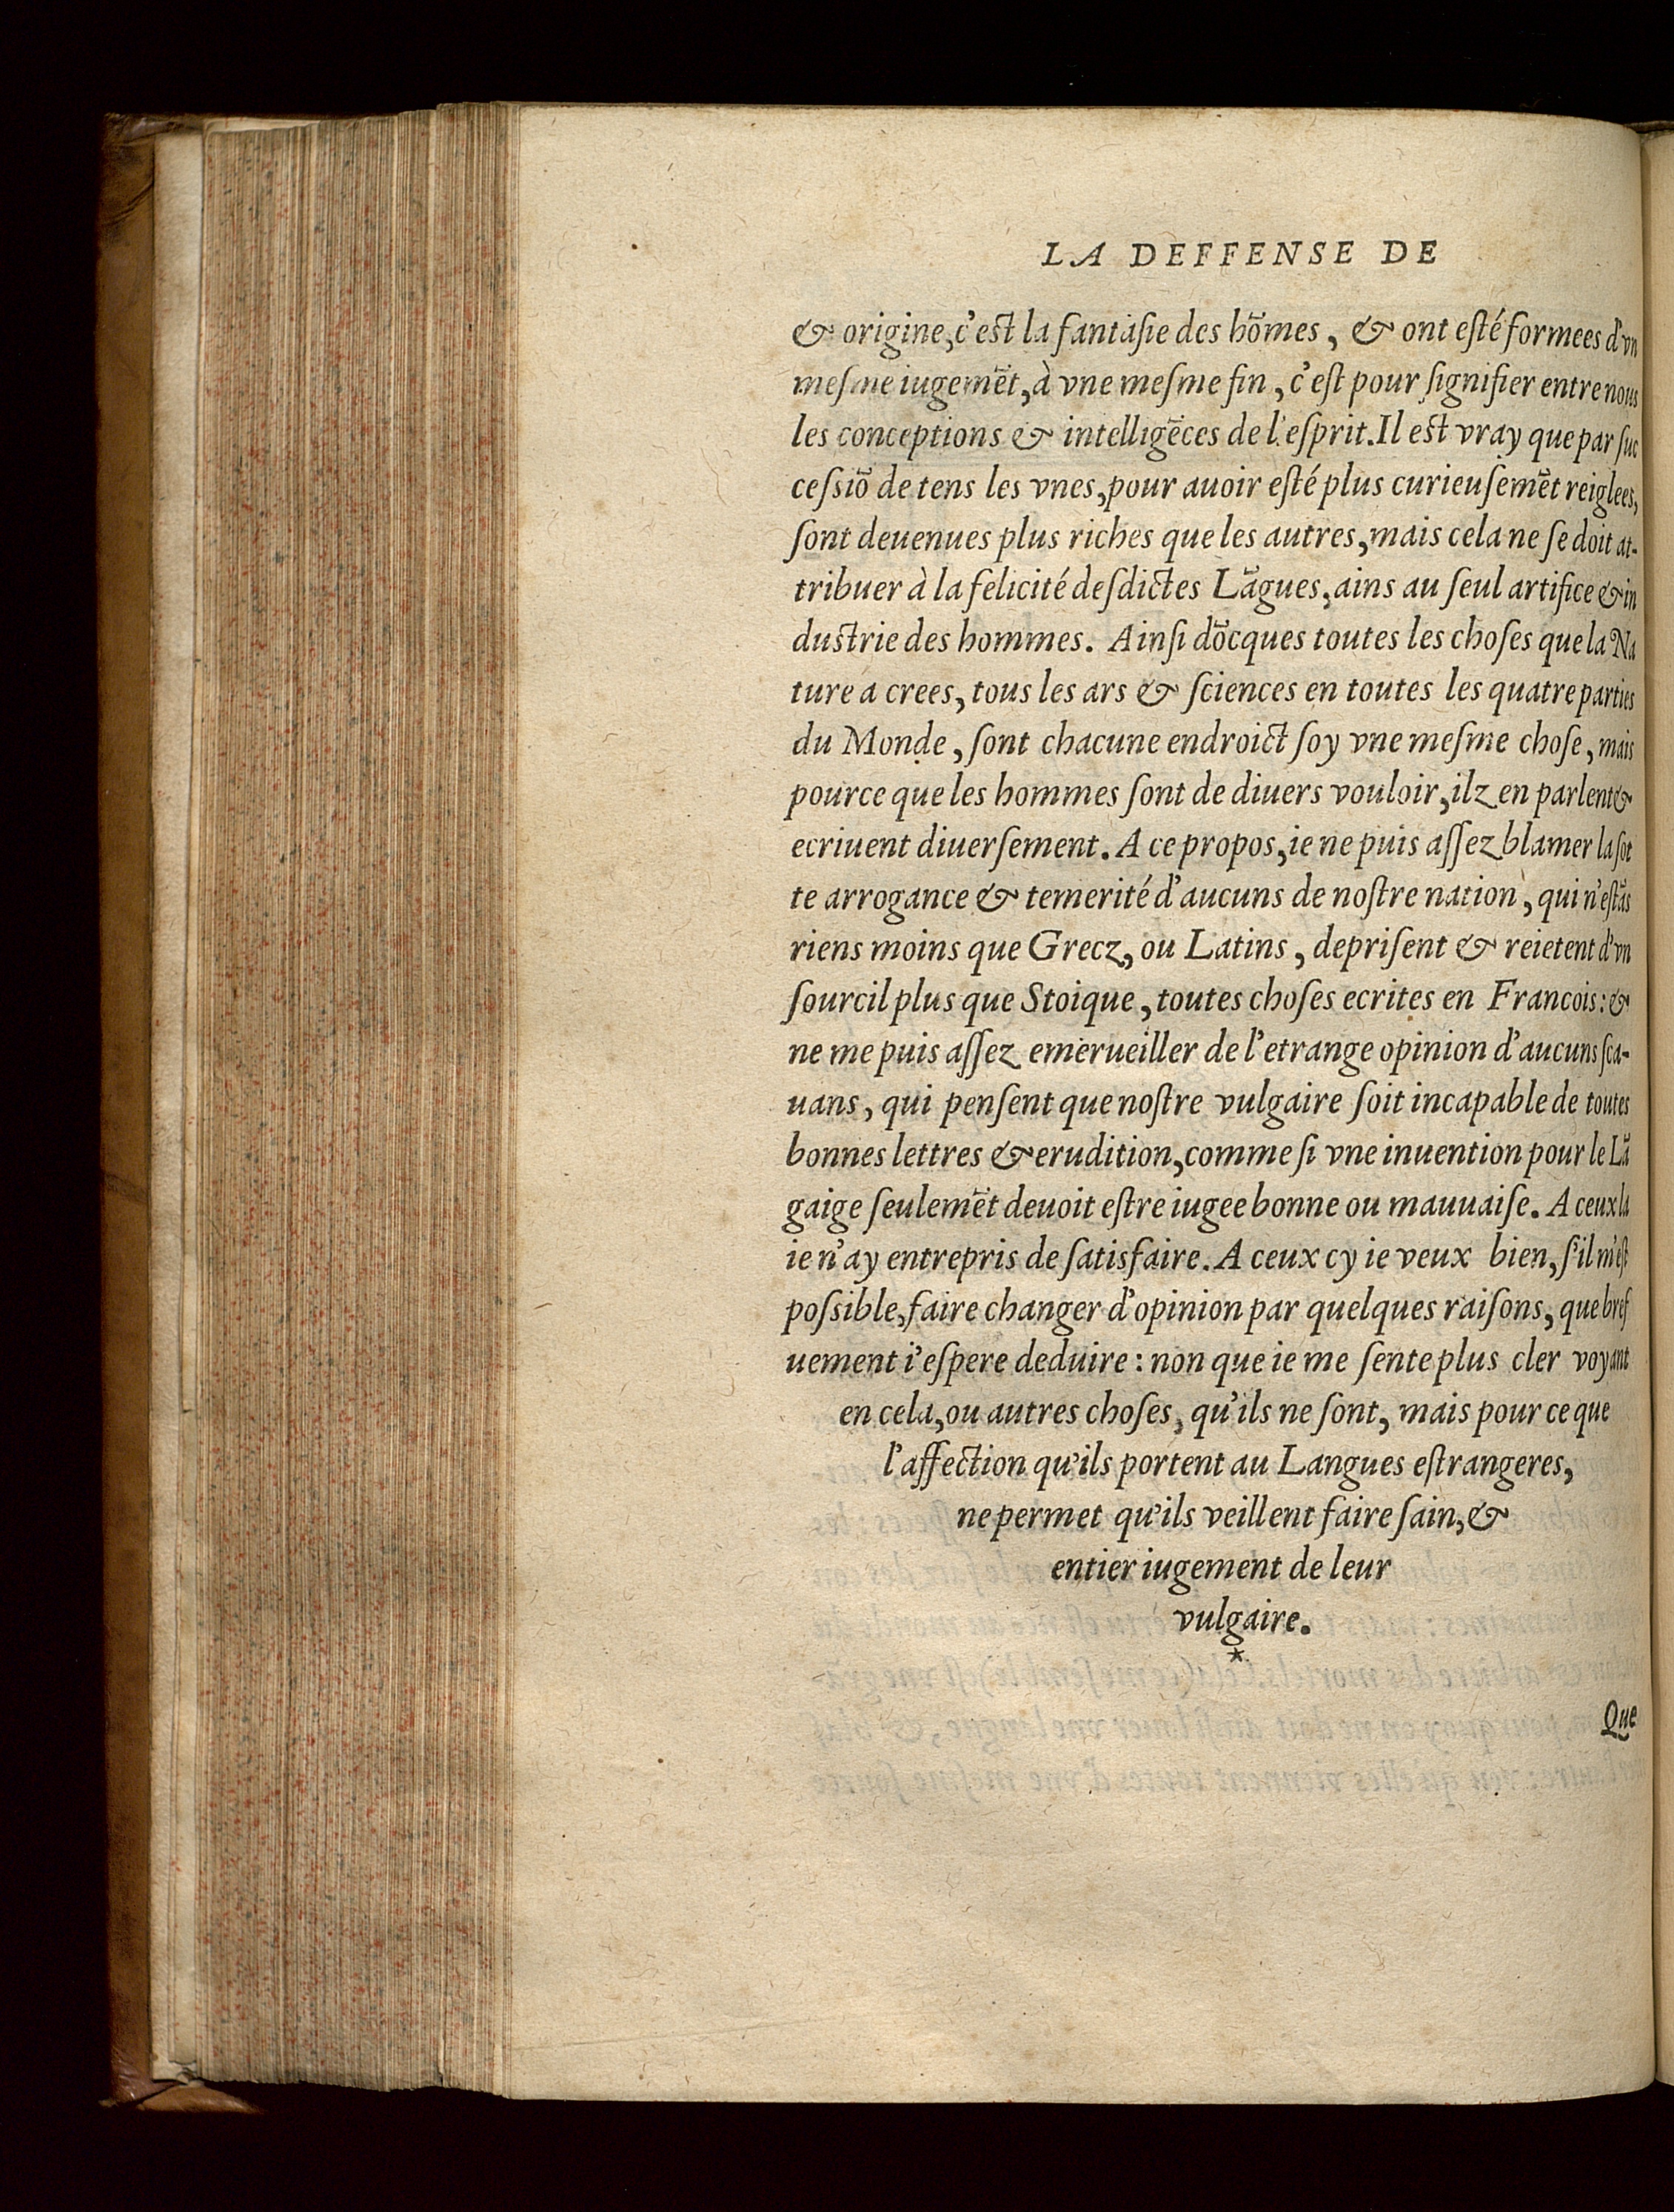 LA DEFFENSE DE
& origine, c'est la fantasie des hõmes, & ont esté formees d'vn
mesme iugemẽt, à vne mesme fin, c'est pour signifier entre nous
les conceptions & intelligẽces de l'esprit. Il est vray que par suc
cessiõ de tens les vnes, pour auoir esté plus curieusemẽt reiglees,
sont deuenues plus riches que les autres, mais cela ne se doit at-
tribuer à la felicité desdictes Lãgues, ains au seul artifice & in
dustrie des hommes. Ainsi dõcques toutes les choses que la Na
ture a crees, tous les ars & sciences en toutes les quatre parties
du Monde, sont chacune endroict soy vne mesme chose, mais
pource que les hommes sont de diuers vouloir, ilz en parlent &
ecriuent diuersement. A ce propos, ie ne puis assez blamer la sot
te arrogance & temerité d'aucuns de nostre nation, qui n'estãs
riens moins que Grecz, ou Latins, deprisent & reietent d'vn
sourcil plus que Stoique, toutes choses ecrites en Francois: &
ne me puis assez emerueiller de l'etrange opinion d'aucuns sca-
uans, qui pensent que nostre vulgaire soit incapable de toutes
bonnes lettres & erudition, comme si vne inuention pour le Lã
gaige seulemẽt deuoit estre iugee bonne ou mauuaise. A ceux la
ie n'ay entrepris de satisfaire. A ceux cy ie veux bien, s'il m'est
possible, faire changer d'opinion par quelques raisons, que bref
uement i'espere deduire: non que ie me sente plus cler voyant
en cela, ou autres choses, qu'ils ne sont, mais pour ce que
l'affection qu'ils portent au Langues estrangeres,
ne permet qu'ils veillent faire sain, &
entier iugement de leur
vulgaire.
*
Que